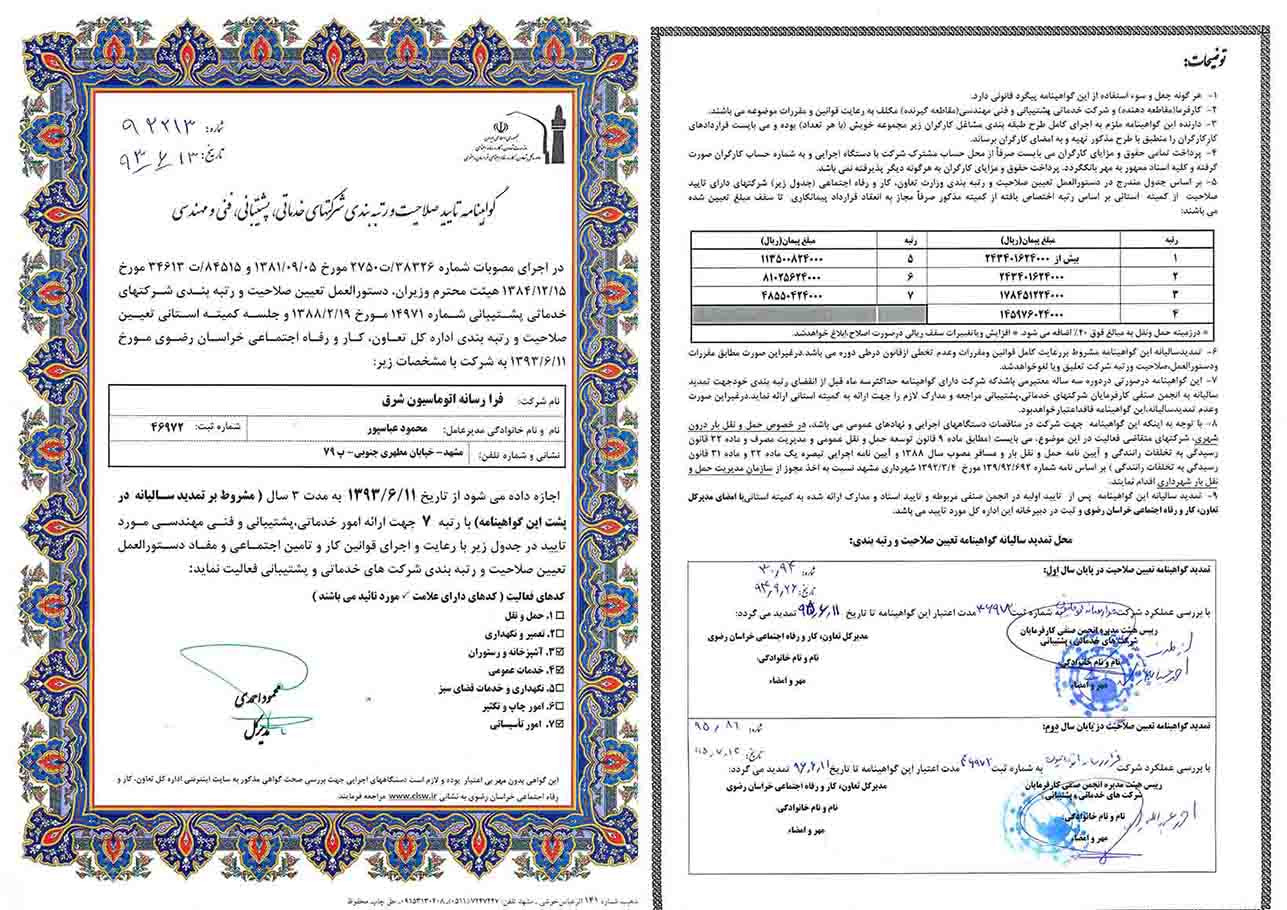 شماره: ۹۲۲۱۳
تاریخ: ۹۳,۶,۱۳
جمهوری اسلامی ایران
گواهینامه تایید صلاحیت و رتبه بندی شرکتهای خدماتی، پشتیبانی، فنی و مهندسی
در اجرای مصوبات شماره ۳۸۳۲۶/ت۲۷۵۰ مورخ ۱۳۸۱/۰۹/۰۵ و ۸۴۵۱۵/ت ۳۴۶۱۳ مورخ
۱۳۸۴/۱۲/۱۵ هیئت محترم وزیران، دستورالعمل تعیین صلاحیت و رتبه بندی شرکتهای
خدماتی پشتیبانی شماره ۱۴۹۷۱ مورخ ۱۳۸۸/۲/۱۹ و جلسه کمیته استانی تعیین
صلاحیت و رتبه بندی اداره کل تعاون، کار و رفاه اجتماعی خراسان رضوی مورخ
۱۳۹۳/۶/۱۱ به شرکت با مشخصات زیر:
نام شرکت: فرا رسانه اتوماسیون شرق
نام و نام خانوادگی مدیرعامل: محمود عباسپور شماره ثبت: ۴۶۹۷۲
نشانی و شماره تلفن: مشهد- خیابان مطهری جنوبی- پ ۷۹
اجازه داده می شود از تاریخ ۱۳۹۳/۶/۱۱ به مدت ۳ سال ( مشروط بر تمدید سالیانه در
پشت این گواهینامه) با رتبه ۷ جهت ارائه امور خدماتی،پشتیبانی و فنی مهندسی مورد
تایید در جدول زیر با رعایت و اجرای قوانین کار و تامین اجتماعی و مفاد دستورالعمل
تعیین صلاحیت و رتبه بندی شرکت های خدماتی و پشتیبانی فعالیت نماید:
کدهای فعالیت ( کدهای دارای علامت ✓ مورد تائید می باشند )
□ ۱. حمل و نقل
□ ۲. تعمیر و نگهداری
☑ ۳. آشپزخانه و رستوران
☑ ۴. خدمات عمومی
□ ۵. نگهداری و خدمات فضای سبز
□ ۶. امور چاپ و تکثیر
☑ ۷. امور تأسیساتی
محمود احمدی
مدیرکل
این گواهی بدون مهر بی اعتبار بوده و لازم است دستگاههای اجرایی جهت بررسی صحت گواهی مذکور به سایت اینترنتی اداره کل تعاون، کار و
رفاه اجتماعی خراسان رضوی به نشانی www.clsw.ir مراجعه فرمایند.
توضیحات:
۱- هر گونه جعل و سوء استفاده از این گواهینامه پیگرد قانونی دارد.
۲- کارفرما(مقاطعه دهنده) و شرکت خدماتی پشتیبانی و فنی مهندسی(مقاطعه گیرنده) مکلف به رعایت قوانین و مقررات موضوعه می باشند.
۳- دارنده این گواهینامه ملزم به اجرای کامل طرح طبقه بندی مشاغل کارگران زیر مجموعه خویش (با هر تعداد) بوده و می بایست قراردادهای
کارکارگران را منطبق با طرح مذکور تهیه و به امضای کارگران برساند.
۴- پرداخت تمامی حقوق و مزایای کارگران می بایست صرفاً از محل حساب مشترک شرکت با دستگاه اجرایی و به شماره حساب کارگران صورت
گرفته و کلیه اسناد ممهور به مهر بانکگردد. پرداخت حقوق و مزایای کارگران به هرگونه دیگر پذیرفته نمی باشد.
۵- بر اساس جدول مندرج در دستورالعمل تعیین صلاحیت و رتبه بندی وزارت تعاون، کار و رفاه اجتماعی (جدول زیر) شرکتهای دارای تایید
صلاحیت از کمیته استانی بر اساس رتبه اختصاص یافته از کمیته مذکور صرفاً مجاز به انعقاد قرارداد پیمانکاری تا سقف مبلغ تعیین شده
می باشند:
رتبه مبلغ پیمان(ریال) رتبه مبلغ پیمان(ریال)
۱ بیش از ۲۴۳۴۰۱۶۲۴۰۰۰ ۵ ۱۱۳۵۰۰۸۲۴۰۰۰
۲ ۲۴۳۴۰۱۶۲۴۰۰۰ ۶ ۸۱۰۲۵۶۲۴۰۰۰
۳ ۱۷۸۴۵۱۲۲۴۰۰۰ ۷ ۴۸۵۵۰۴۲۴۰۰۰
۴ ۱۴۵۹۷۶۰۲۴۰۰۰
* درزمینه حمل ونقل به مبالغ فوق ۲۰٪ اضافه می شود. * افزایش ویاتغییرات سقف ریالی درصورت اصلاح،ابلاغ خواهدشد.
۶- تمدیدسالیانه این گواهینامه مشروط بررعایت کامل قوانین ومقررات وعدم تخطی ازقانون درطی دوره می باشد.درغیراین صورت مطابق مقررات
ودستورالعمل،صلاحیت ورتبه شرکت تعلیق ویا لغوخواهدشد.
۷- این گواهینامه درصورتی دردوره سه ساله معتبرمی باشدکه شرکت دارای گواهینامه حداکثرسه ماه قبل از انقضای رتبه بندی خودجهت تمدید
سالیانه به انجمن صنفی کارفرمایان شرکتهای خدماتی،پشتیبانی مراجعه و مدارک لازم را جهت ارائه به کمیته استانی ارائه نماید.درغیراین صورت
وعدم تمدیدسالیانه،این گواهینامه فاقداعتبارخواهدبود.
۸- با توجه به اینکه این گواهینامه جهت شرکت در مناقصات دستگاههای اجرایی و نهادهای عمومی می باشد، در خصوص حمل و نقل بار درون
شهری، شرکتهای متقاضی فعالیت در این موضوع، می بایست (مطابق ماده ۹ قانون توسعه حمل و نقل عمومی و مدیریت مصرف و ماده ۳۲ قانون
رسیدگی به تخلفات رانندگی و آیین نامه حمل و نقل بار و مسافر مصوب سال ۱۳۸۸ و آیین نامه اجرایی تبصره یک ماده ۲۲ و ماده ۳۱ قانون
رسیدگی به تخلفات رانندگی ) بر اساس نامه شماره ۱۳۹/۹۲/۶۹۲ مورخ ۱۳۹۲/۳/۴ شهرداری مشهد نسبت به اخذ مجوز از سازمان مدیریت حمل و
نقل بار شهرداری اقدام نمایند.
۹- تمدید سالیانه این گواهینامه پس از تایید اولیه در انجمن صنفی مربوطه و تایید اسناد و مدارک ارائه شده به کمیته استانی،با امضای مدیرکل
تعاون، کار و رفاه اجتماعی خراسان رضوی و ثبت در دبیرخانه این اداره کل مورد تایید می باشد.
محل تمدید سالیانه گواهینامه تعیین صلاحیت و رتبه بندی:
تمدید گواهینامه تعیین صلاحیت در پایان سال اول: شماره: ۳۰,۹۴
تاریخ: ۹۴,۹,۲۲
با بررسی عملکرد شرکت به شماره ثبت ۴۶۹۷۲ مدت اعتبار این گواهینامه تا تاریخ ۹۵,۶,۱۱ تمدید می گردد.
رییس هیئت مدیره انجمن صنفی کارفرمایان مدیرکل تعاون، کار و رفاه اجتماعی خراسان رضوی
شرکت های خدماتی، پشتیبانی
نام و نام خانوادگی: نام و نام خانوادگی:
مهر و امضاء مهر و امضاء
تمدید گواهینامه تعیین صلاحیت در پایان سال دوم: شماره: ۹۵,۸۱
تاریخ:
با بررسی عملکرد شرکت به شماره ثبت ۴۶۹۷۲ مدت اعتبار این گواهینامه تا تاریخ ۹۶,۶,۱۱ تمدید می گردد:
رییس هیئت مدیره انجمن صنفی کارفرمایان مدیرکل تعاون، کار و رفاه اجتماعی خراسان رضوی
شرکت های خدماتی و پشتیبانی:
نام و نام خانوادگی: نام و نام خانوادگی:
مهر و امضاء مهر و امضاء